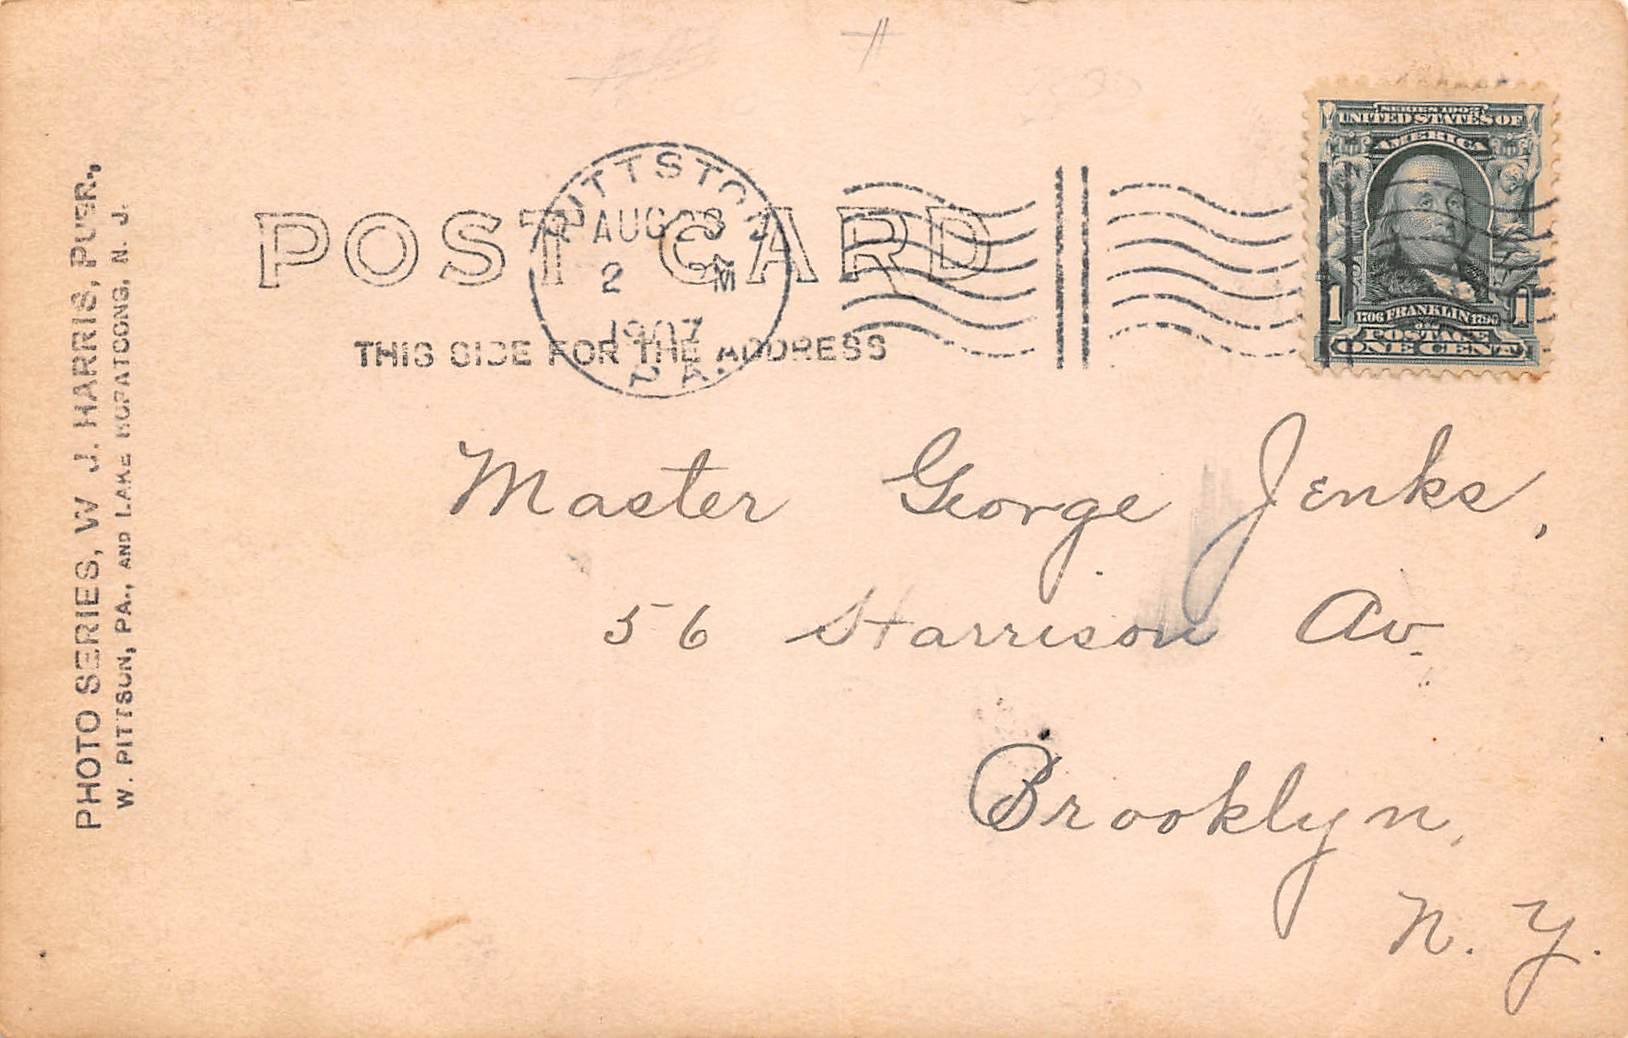 PHOTO SERIES, W. J. HARRIS, PUBR.,
W. PITTSON, PA., AND LAKE HOPATCONG, N. J.
POST CARD
THIS SIDE FOR THE ADDRESS
PITTSTON
AUG 28
2 M
1907
PA.
SERIES 1902
UNITED STATES OF
AMERICA
1 1
1706 FRANKLIN 1790
POSTAGE
ONE CENT
Master George Jenks,
56 Harrison Av.
Brooklyn,
N. Y.